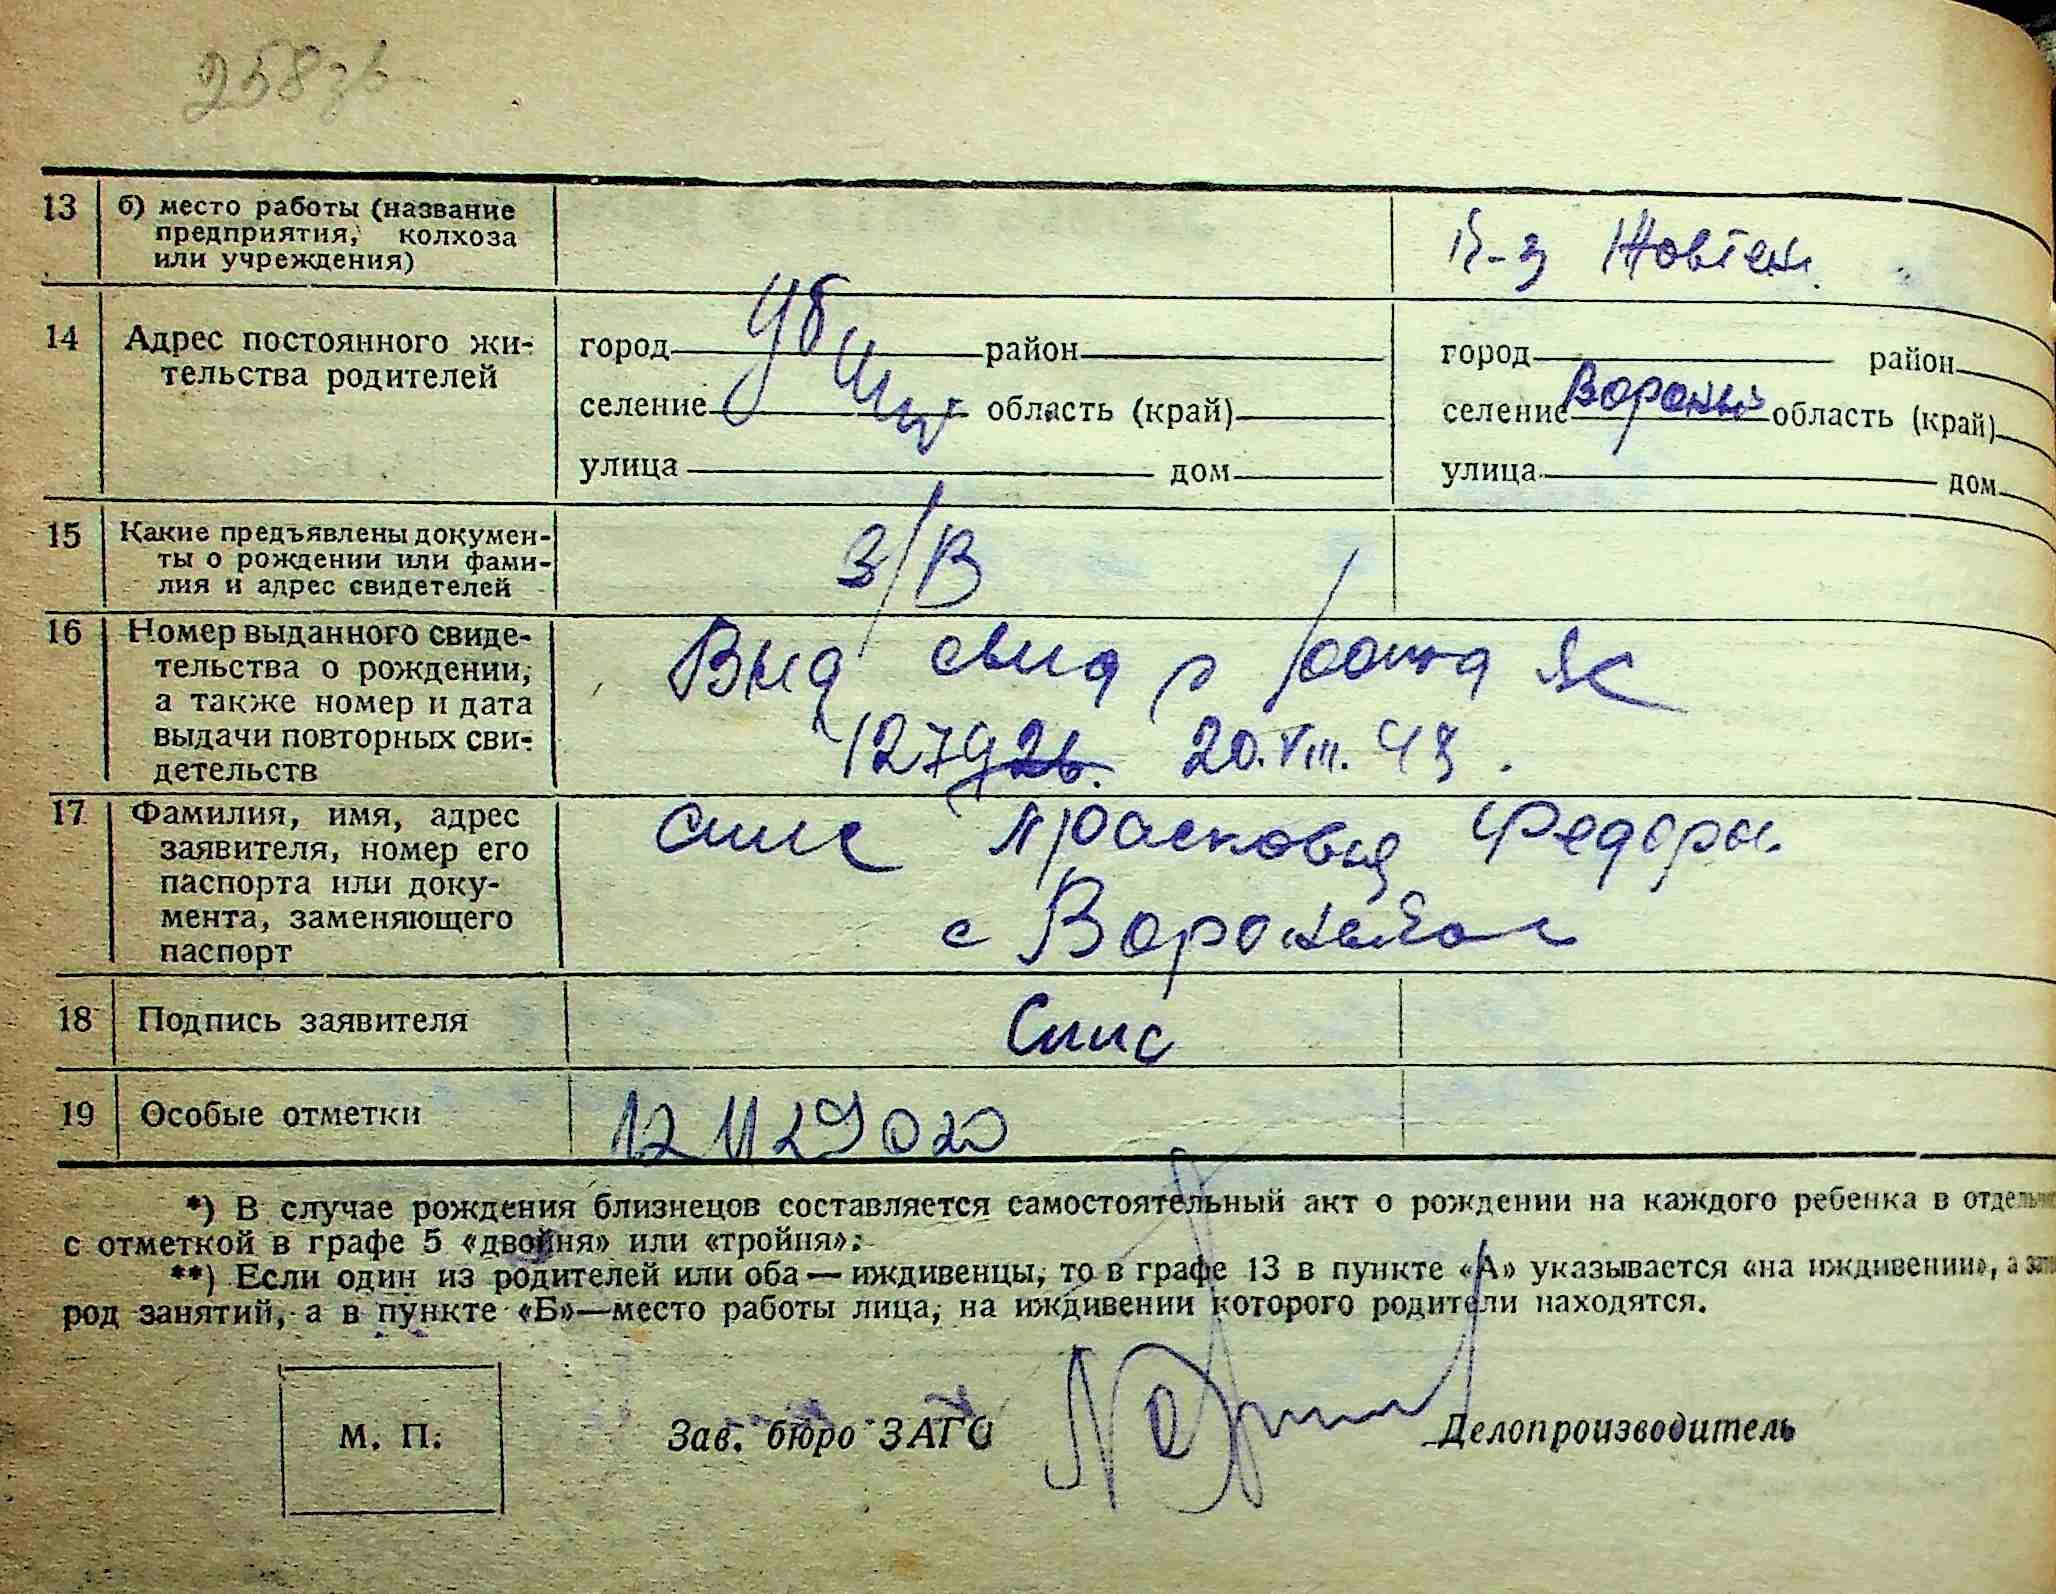 258зв
13 б) место работы (название
предприятия, колхоза
или учреждения)
к-з Жовтен.
14 Адрес постоянного жи-
тельства родителей
город район
город район
селение область (край)
селение область (край)
улица дом
улица дом
15 Какие предъявлены докумен-
ты о рождении или фами-
лия и адрес свидетелей
З/В
16 Номер выданного свиде-
тельства о рождении,
а также номер и дата
выдачи повторных сви-
детельств
Выд свид о
20.VIII.48.
17 Фамилия, имя, адрес
заявителя, номер его
паспорта или доку-
мента, заменяющего
паспорт
Спис Прасковья Федоры.
с
18 Подпись заявителя
Спис
19 Особые отметки
*) В случае рождения близнецов составляется самостоятельный акт о рождении на каждого ребенка в
с отметкой в графе 5 «двойня» или «тройня».
**) Если один из родителей или оба — иждивенцы, то в графе 13 в пункте «А» указывается «на иждивении», а
род занятий, а в пункте «Б»—место работы лица, на иждивении которого родители находятся.
М. П.
Зав. бюро ЗАГС
Делопроизводитель